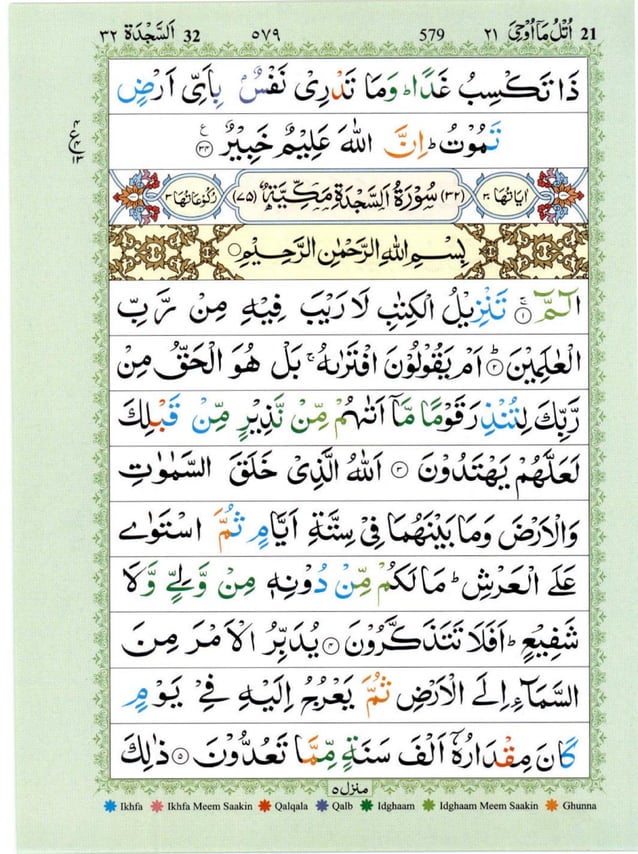 اُتْلُ مَاۤ اُوْحِیَ ۲۱ 21 579 ۵۷۹ 32 اَلسَّجْدَة ۳۲
ذَا تَكْسِبُ غَدًا ؕ وَمَا تَدْرِیْ نَفْسٌۢ بِاَیِّ اَرْضٍ
تَمُوْتُ ؕ اِنَّ اللّٰهَ عَلِیْمٌ خَبِیْرٌ ﴿۳۴﴾
اٰیَاتُهَا ۳۰ (۳۲) سُوْرَةُ السَّجْدَةِ مَكِّیَّةٌ (۷۵) رُكُوْعَاتُهَا ۳
بِسْمِ اللّٰهِ الرَّحْمٰنِ الرَّحِیْمِ
الٓمّٓ ۚ﴿۱﴾ تَنْزِیْلُ الْكِتٰبِ لَا رَیْبَ فِیْهِ مِنْ رَّبِّ
الْعٰلَمِیْنَ ؕ﴿۲﴾ اَمْ یَقُوْلُوْنَ افْتَرٰىهُ ۚ بَلْ هُوَ الْحَقُّ مِنْ
رَّبِّكَ لِتُنْذِرَ قَوْمًا مَّاۤ اَتٰىهُمْ مِّنْ نَّذِیْرٍ مِّنْ قَبْلِكَ
لَعَلَّهُمْ یَهْتَدُوْنَ ﴿۳﴾ اَللّٰهُ الَّذِیْ خَلَقَ السَّمٰوٰتِ
وَالْاَرْضَ وَمَا بَیْنَهُمَا فِیْ سِتَّةِ اَیَّامٍ ثُمَّ اسْتَوٰی
عَلَی الْعَرْشِ ؕ مَا لَكُمْ مِّنْ دُوْنِهٖ مِنْ وَّلِیٍّ وَّلَا
شَفِیْعٍ ؕ اَفَلَا تَتَذَكَّرُوْنَ ﴿۴﴾ یُدَبِّرُ الْاَمْرَ مِنَ
السَّمَآءِ اِلَی الْاَرْضِ ثُمَّ یَعْرُجُ اِلَیْهِ فِیْ یَوْمٍ
كَانَ مِقْدَارُهٗۤ اَلْفَ سَنَةٍ مِّمَّا تَعُدُّوْنَ ﴿۵﴾ ذٰلِكَ
منزل ۵
Ikhfa Ikhfa Meem Saakin Qalqala Qalb Idghaam Idghaam Meem Saakin Ghunna